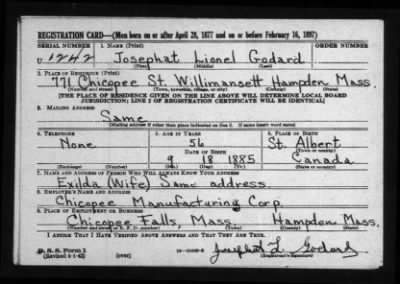 REGISTRATION CARD—(Men born on or after April 28, 1877 and on or before February 16, 1897)
SERIAL NUMBER 1. NAME (Print)
U 1242 Josephat Lionel Godard
(First) (Middle) (Last)
2. PLACE OF RESIDENCE (Print)
771 Chicopee St. Willimansett Hampden Mass.
(Number and street) (Town, township, village, or city) (County) (State)
[THE PLACE OF RESIDENCE GIVEN ON THE LINE ABOVE WILL DETERMINE LOCAL BOARD
JURISDICTION; LINE 2 OF REGISTRATION CERTIFICATE WILL BE IDENTICAL]
3. MAILING ADDRESS
Same
[Mailing address if other than place indicated on line 2. If same insert word same]
4. TELEPHONE 5. AGE IN YEARS 6. PLACE OF BIRTH
None 56 St. Albert
DATE OF BIRTH (Town or county)
9 18 1885 Canada
(Exchange) (Number) (Mo.) (Day) (Yr.) (State or country)
7. NAME AND ADDRESS OF PERSON WHO WILL ALWAYS KNOW YOUR ADDRESS
Exilda (Wife) Same address.
8. EMPLOYER'S NAME AND ADDRESS
Chicopee Manufacturing Corp.
9. PLACE OF EMPLOYMENT OR BUSINESS
Chicopee Falls, Mass. Hampden Mass.
(Number and street or R. F. D. number) (Town) (County) (State)
I AFFIRM THAT I HAVE VERIFIED ABOVE ANSWERS AND THAT THEY ARE TRUE.
D. S. S. Form 1
(Revised 4-1-42) (over) Josephat L Godard